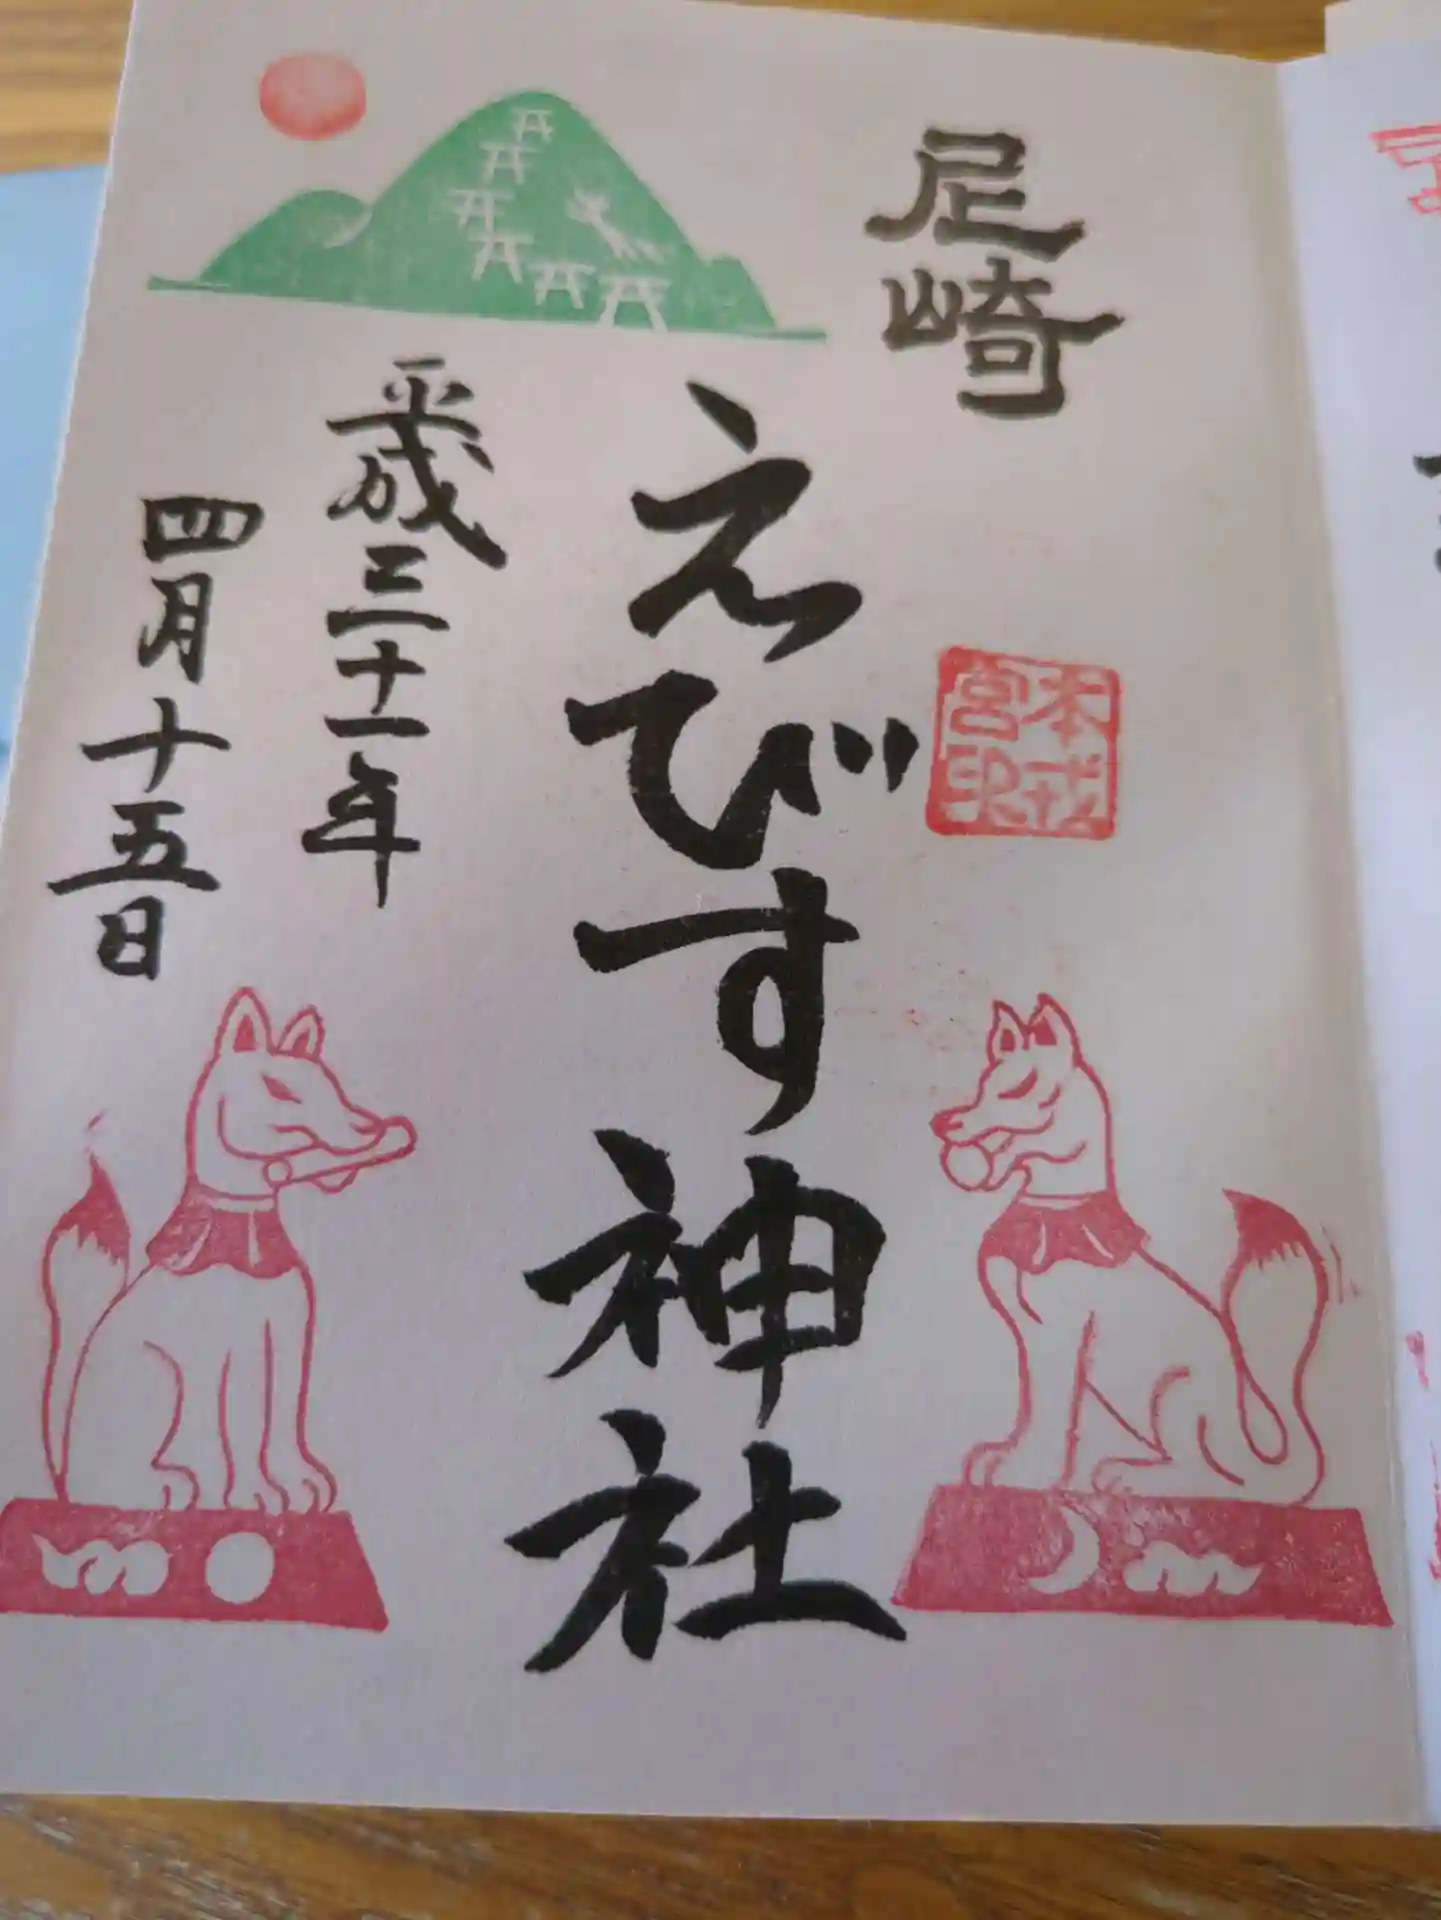 尼崎
えびす神社
本戎
宮印
平成三十一年
四月十五日